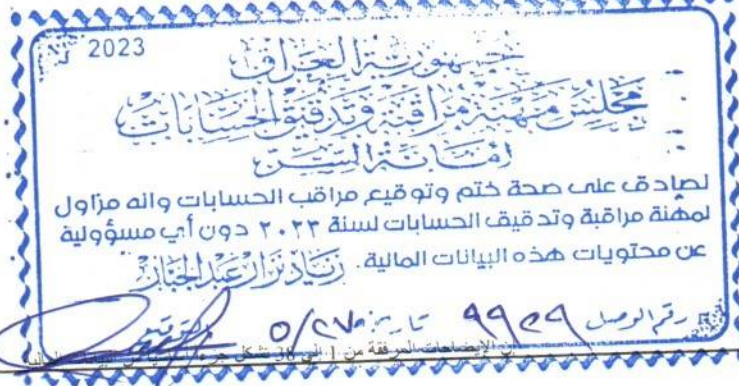 2023
جمهورية العراق
مجلس مهنة مراقبة وتدقيق الحسابات
امانة السر
نصادق على صحة ختم وتوقيع مراقب الحسابات وانه مزاول
لمهنة مراقبة وتدقيق الحسابات لسنة ٢٠٢٣ دون أي مسؤولية
عن محتويات هذه البيانات المالية. زياد نزار عبد الجبار
رقم الوصل ٩٩٢٩ تاريخه ٥/٢٧ توقيع
الإيضاحات المرفقة من 1 إلى 38 تشكل